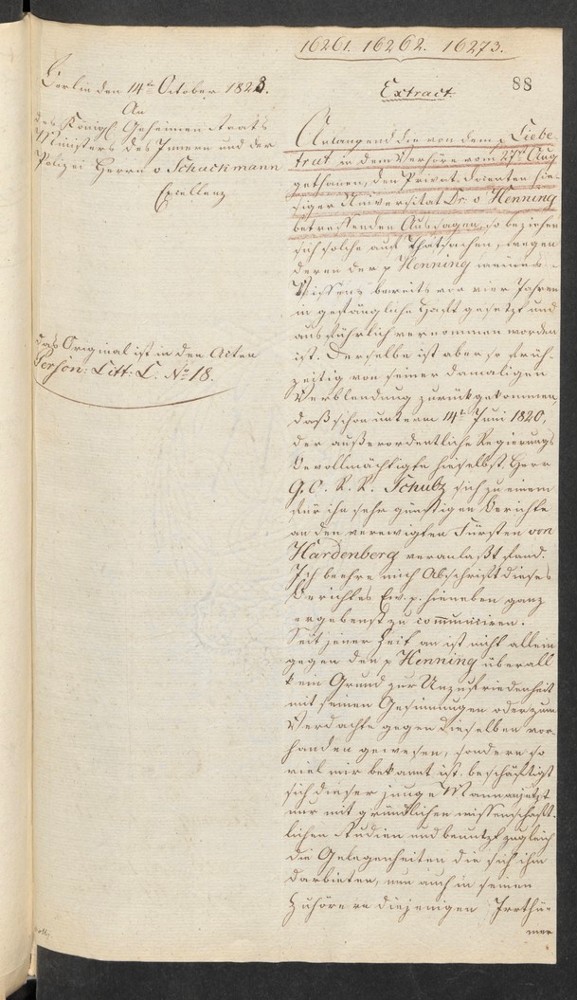 16261. 16262. 16273.
88
Berlin den 14ten October 1823.
An
des Königl. Geheimen Staats
Ministers des Innern und der
Polizei Herrn v Schuckmann
Excellenz
das Original ist in den Acten
Person: Litt: L. No 18.
Extract.
Anlangend die von dem p Liebe-
trut in dem Verhöre vom 27ten Aug
gethanen, den Privat-Docenten hie-
siger Universität Dr. v Henning
betreffenden Aussagen, so beziehen
sich solche auf Thatsachen, wegen
deren der p Henning meines
Wissens bereits vor vier Jahren
in gefängliche Haft gesetzt und
ausführlich vernommen worden
ist. Derselbe ist aber so früh-
zeitig von seiner damaligen
Verblendung zurückgekommen,
daß schon unterm 14ten Juni 1820,
der außerordentliche Regierungs
Bevollmächtigte hieselbst, Herr
G. O. R. R. Schultz sich zu einem
für ihn sehr günstigen Berichte
an den verewigten Fürsten von
Hardenberg veranlaßt fand.
Ich beehre mich Abschrift dieses
Berichtes Ew. p. hieneben ganz
ergebenst zu communiciren.
Seit jener Zeit an ist nicht allein
gegen den p Henning überall
kein Grund zur Unzufriedenheit
mit seinen Gesinnungen oder zum
Verdachte gegen dieselben vor-
handen gewesen, sondern so
viel mir bekannt ist, beschäftigt
sich dieser junge Mann anjetzt
nur mit gründlichen wissenschaft-
lichen Studien und benutzt zugleich
die Gelegenheiten die sich ihm
darbieten, um auch in seinen
Zuhörern diejenigen Irrthü-
mer